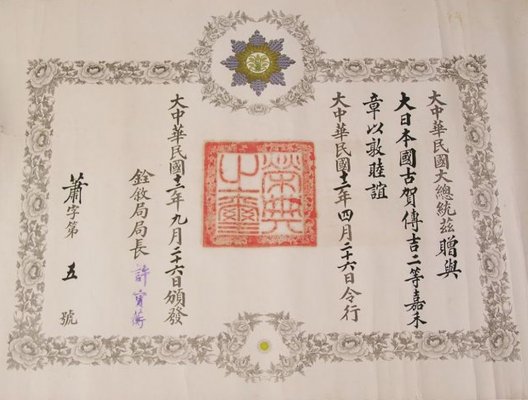 大中華民國大總統茲贈與
大日本國古賀傳吉二等嘉禾
章以敦睦誼
大中華民國十二年四月二十六日令行
榮典之璽
大中華民國十二年九月二十六日頒發
銓敘局局長
蕭字第五號